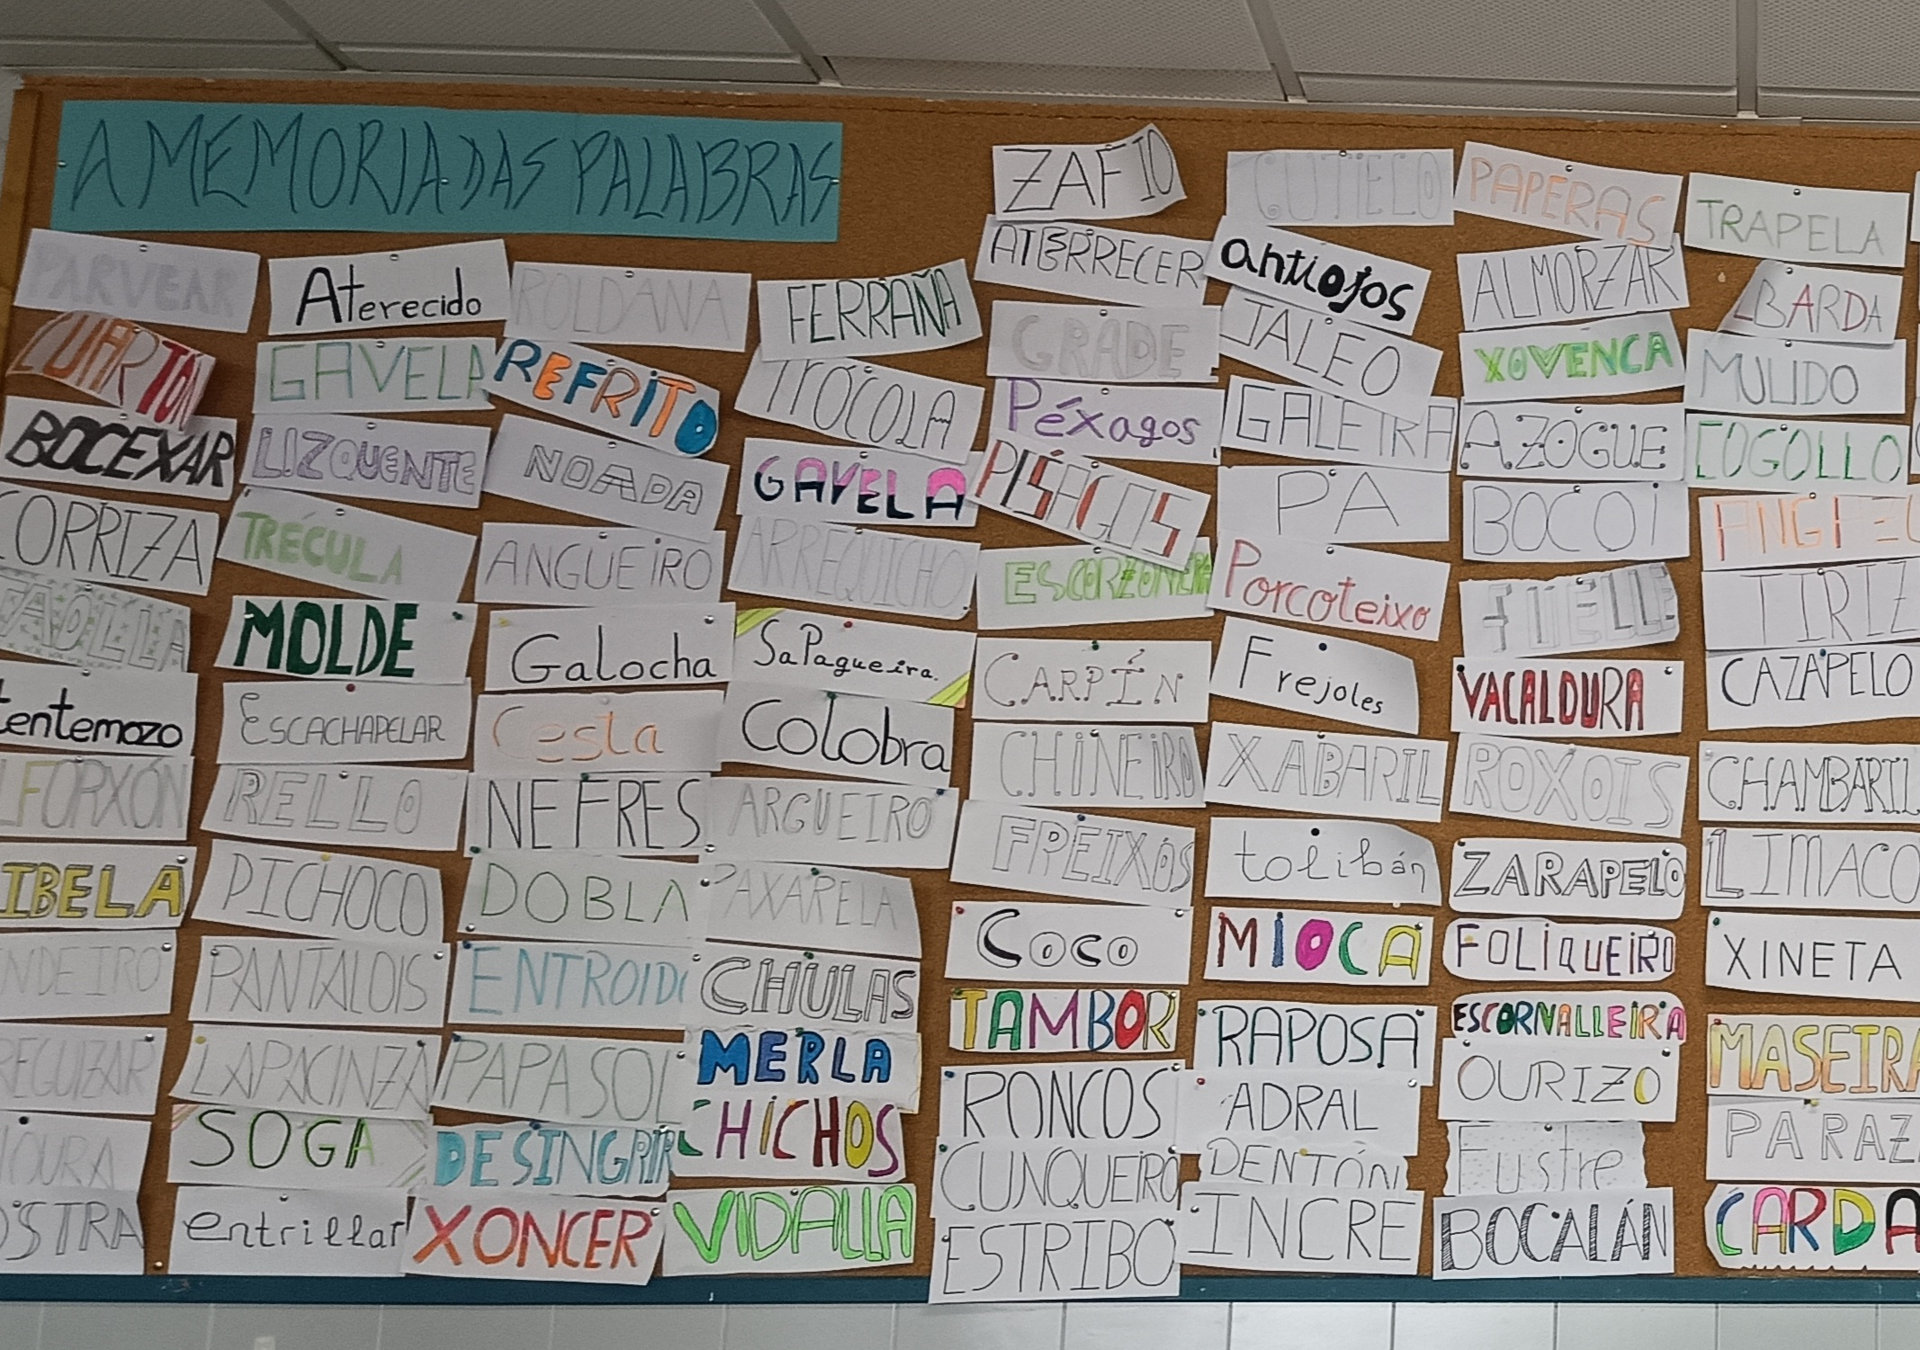 A MEMORIA DAS PALABRAS
ZAFIO
CUTIELO
PAPERAS
TRAPELA
PARVEAR
Aterecido
ROLDANA
FERRAÑA
ATERRECER
antiojos
ALMORZAR
BARDA
CUARTÓN
GAVELA
REFRITO
TROCOLA
GRADE
JALEO
XOVENCA
MULIDO
BOCEXAR
LIZQUENTE
NOADA
GAVELA
Péxagos
GALEIRA
AZOGUE
COGOLLO
ORRIZA
TRÉCULA
ANGUEIRO
ARREQUICHO
PISAGOS
PA
BOCOI
MOLDE
Galocha
SaPagueira.
ESCORZONEIRA
Porcoteixo
FUELLE
TIRIZ
tentemozo
ESCACHAPELAR
Cesta
Colobra
CARPÍN
Frejoles
VACALOURA
CAZAPELO
RELLO
NEFRES
ARGUEIRO
CHINEIRO
XABARIL
ROXOIS
CHAMBARIL
IBELA
PICHOCO
DOBLA
PAXARELA
FREIXÓS
tolibán
ZARAPELO
LLIMACO
NDEIRO
PANTALOIS
ENTROIDO
CHULAS
Coco
MIOCA
FOLIQUEIRO
XINETA
REGUIZAR
LAPACINZA
PAPASOL
MERLA
TAMBOR
RAPOSA
ESCORNALLEIRA
MASEIRA
OURA
SOGA
DESINGRIR
CHICHOS
RONCOS
ADRAL
OURIZO
PARAZ
OSTRA
entrillar
XONCER
VIDALLA
CUNQUEIRO
DENTÓN
Fustre
ESTRIBO
INCRE
BOCALÁN
CARDA